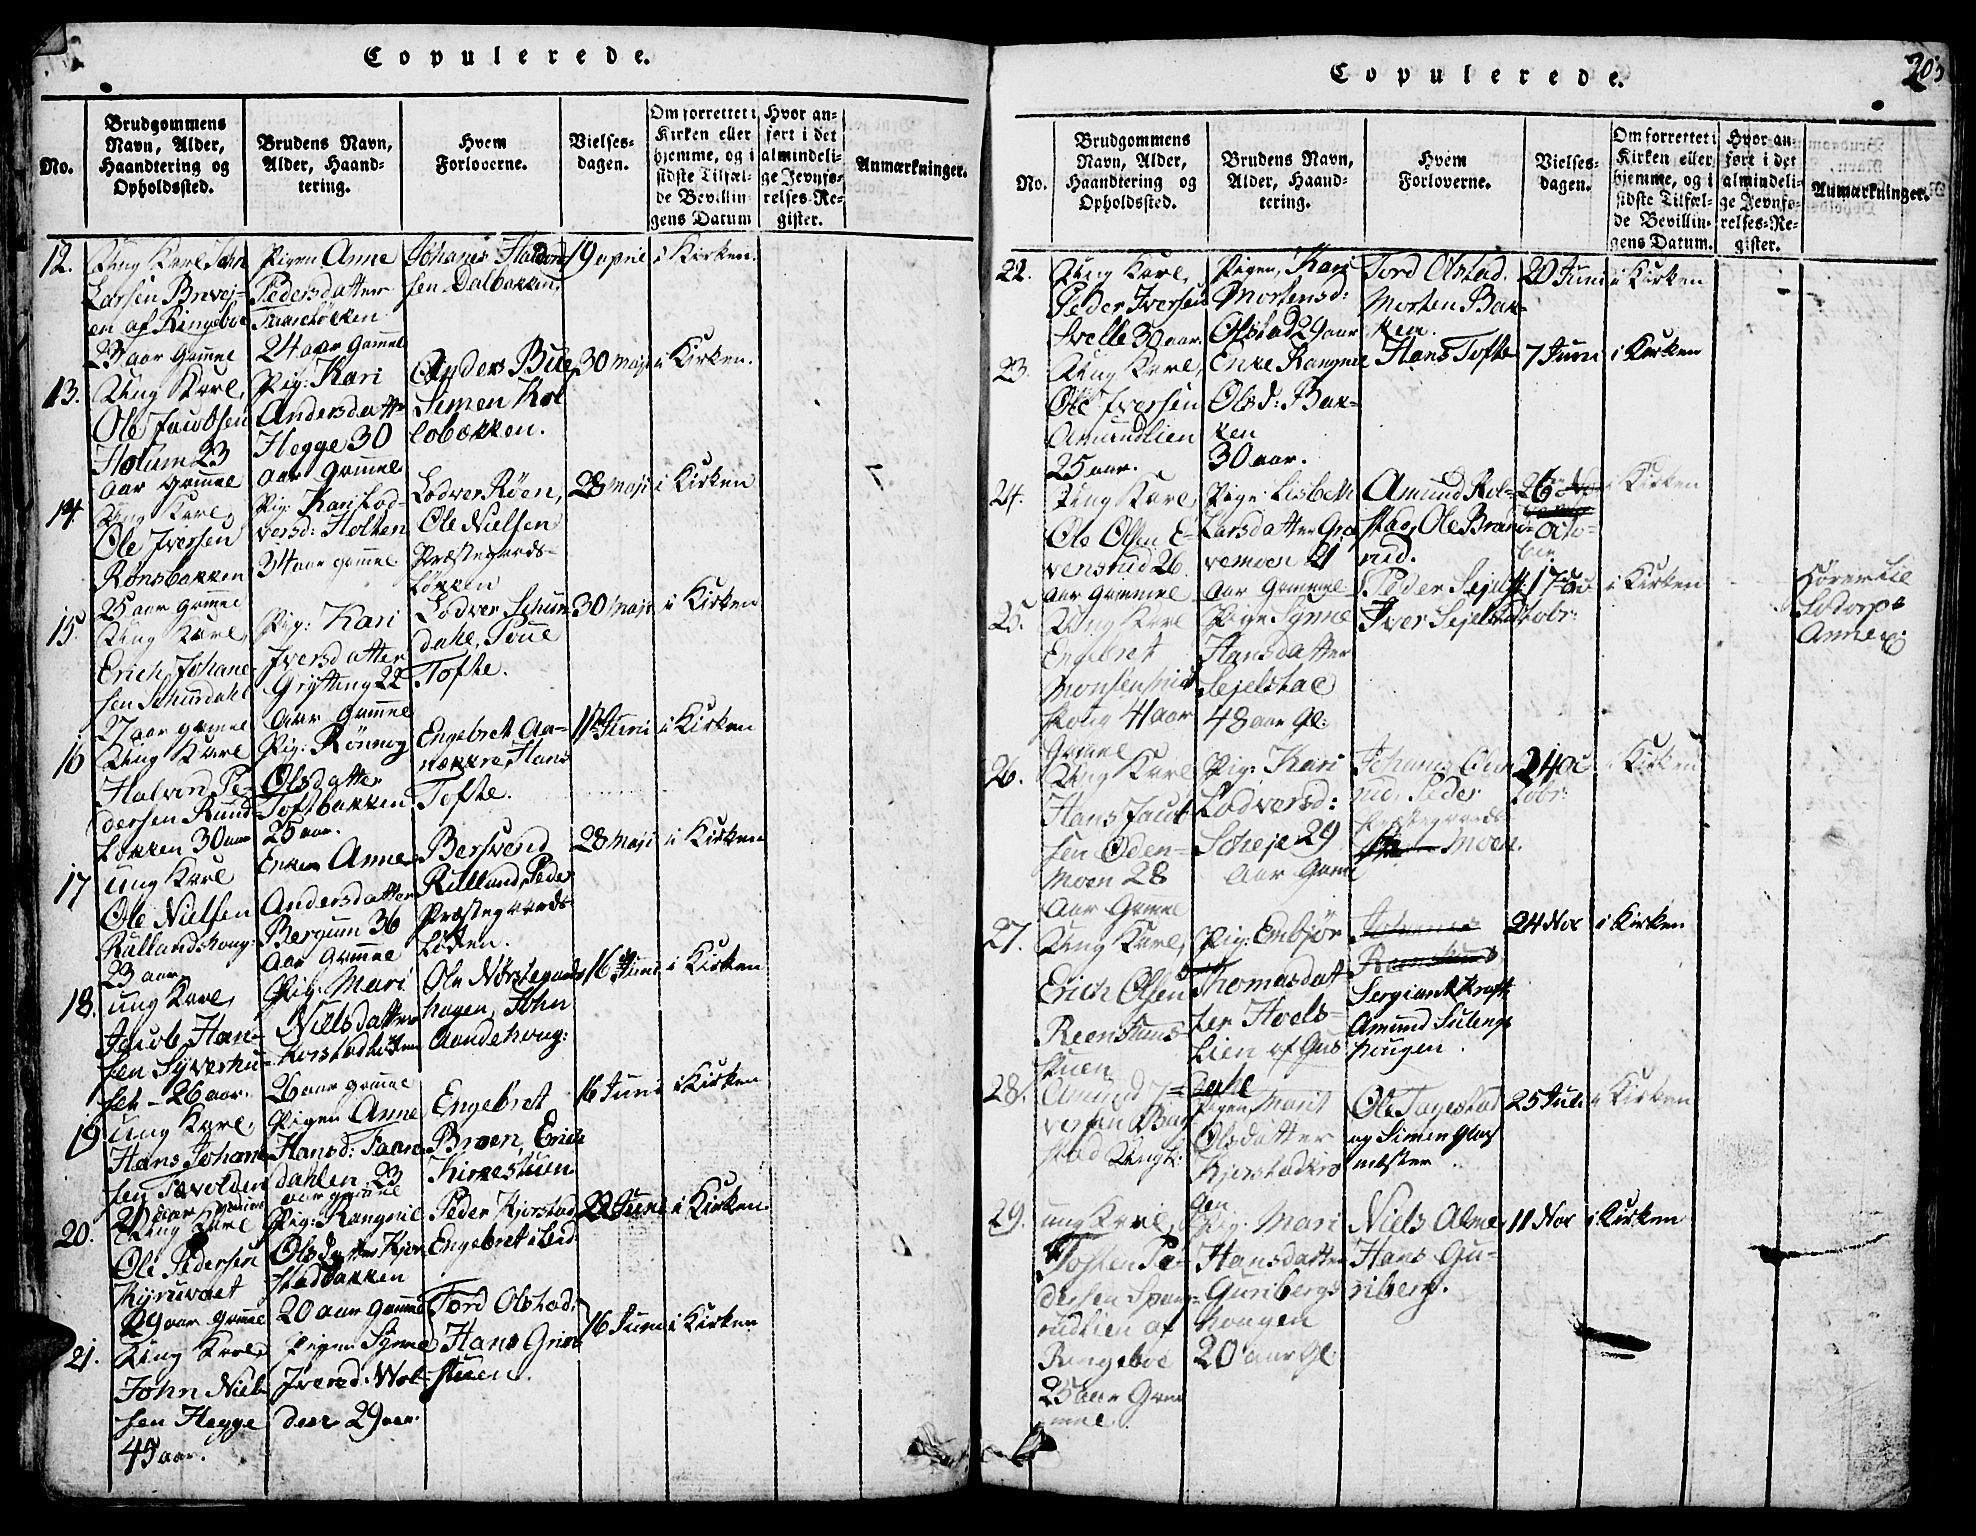 Copulerede.
No.
Brudgommens
Navn, Alder,
Haandtering og
Opholdssted.
Brudens Navn,
Alder, Haand-
tering.
Hvem
Forloverne.
Vielses-
dagen.
Om forrettet i
Kirken eller
hjemme, og i
sidste Tilfæl-
de Bevillin-
gens Datum
Hvor an-
ført i det
almindeli-
ge Jevnfø-
relses-Re-
gister.
Anmærkninger.
12.
Ung Karl John
Larsen
en af Ringeboe
23 aar Gamel
Pigen Anne
Pedersdatter
24 aar Gamel
Johanes
sen Dalbakken
19 april
i Kirken.
13.
Ung Karl,
Ole Jacobsen
Holum 23
aar Gamel
Pig: Kari
Andersdatter
Hegge 30
aar Gamel
Anders Bue
Simen Kol
lobækken.
30 maji
i Kirken.
14.
Ung Karl,
Ole Iversen
Rønsbakken
25 aar Gamel
Pig: Kari Lod-
versd: Holten
34 aar gamel
Lodver Røen,
Ole Nielsen
Præstegaards-
Løkken
28 maji
i Kirken
15.
Ung Karl,
Erich Johane-
sen Schurdahl
27 aar gamel
Pig: Kari
Iversdatter
Grytting 22
aar Gamel
Lodver Schur-
dahl,
Tofte.
30 maji
i Kirken
16
Ung Karl
Halvor Pe-
dersen Rund-
Løkken 30 aar
Pig: Rønnog
Olsdatter
Toftbakken
25 aar.
Engebret Aa-
rækkre, Hans
Tofte.
11 Juni
i Kirken
17
Ung Karl
Ole Nielsen
Rullandshoug:
23 aar
Enken Anne
Andersdatter
Bergum 36
aar Gamel
Bersvend
Rulland, Peder
Præstegaards-
Løkken.
28 maji
i Kirken
18.
ung Karl,
Jacob Han-
sen Syverhu-
set - 26 aar.
Pig: Mari
Nielsdatter
26 aar gamel
Ole Nørstegaards
hagen, John
16 Juni
i Kirken
19
Ung Karl,
Hans Johane
sen
aar Gamel
Pigen Anne
Hansd:
dahlen 23
aar gamel
Engebret
Broen, Erich
Kirkestuen
16 Juni
i Kirken
20.
Ung Karl
Ole Pedersen
29 aar Gamel
Pig: Rangnil
Olsdatter Kjør
stadbakken
20 aar Gamel
Peder Kjorstad
Engebret
22 Juni
i Kirken.
21.
Ung Karl,
John Niel-
sen Hegge
45 aar.
Pigen Synne
Iversd: Wol-
den 29 aar.
Tord Olstad,
Hans
stuen.
16 Juni
i Kirken
Copulerede.
205
No.
Brudgommens
Navn, Alder,
Haandtering og
Opholdssted.
Brudens Navn,
Alder, Haand-
tering.
Hvem
Forloverne.
Vielses-
dagen.
Om forrettet i
Kirken eller
hjemme, og i
sidste Tilfæl-
de Bevillin-
gens Datum.
Hvor an-
ført i det
almindeli-
ge Jevnfø-
relses-Re-
gister.
Anmærkninger.
22.
Ung Karl,
Peder Iversen
30 aar.
Pigen, Kari
Mortensd:
Olstad 29 aar
Tord Olstad.
Morten Bak-
ken.
20 Juni
i Kirken
23.
Ung Karl,
Ole Iversen
Amundlien
25 aar.
Enke Rangnil
Olsd: Bak-
ken
30 aar.
Hans Tofte
7 Juni
i Kirken
24.
Ung Karl,
Ole Olsen E-
venstud 26
aar Gamel
Pige Lisbeth
Larsdatter Gra
vemoen 21
aar Gamel
Amund Kol-
stad, Ole Brand-
rud.
26
Octo-
ber
i Kirken
25.
Ung Karl
Engebret
Monsen
skoug 41 aar
Gamel
Pige Synne
Hansdatter
Sejelstad
48 aar Gl:
Peder Sejelst:
Iver Sejelstad
17 Oc
tobr:
i Kirken
Sødorps
Annex:
26.
Ung Karl
Hans Jacob
sen Øden-
moen 28
aar Gamel
Pig: Kari
Lodversd:
Scheje 29
aar Gamel
Johanes Øden
rud, Peder
Præstegaards-
Moen.
24 Oc
tobr:
i Kirken
27.
Ung Karl,
Erich Olsen
Reenskaus-
stuen
Pig: Embjør
Thomasdat
ter Hoels-
Lien af Gus
dahl
Sergiant Kraft
Amund Sulengs
hougen.
24 Nov
i Kirken
28.
Amund I-
versen Bag
stad Ungk:
Pigen Marit
Olsdatter
Kjorstadkro
gen
Ole Tagestad
og Simen Glas
mæster
25 Juli
i Kirken
29.
ung Karl,
Tosten Pe-
dersen Spang-
rudlien af
Ringeboe
25 aar Gam
mel.
Pig: Mari
Hansdatter
Guribergs
hougen
20 aar Gl:
Niels Alme
Hans Gu-
riberg.
11 Nov
i Kirken